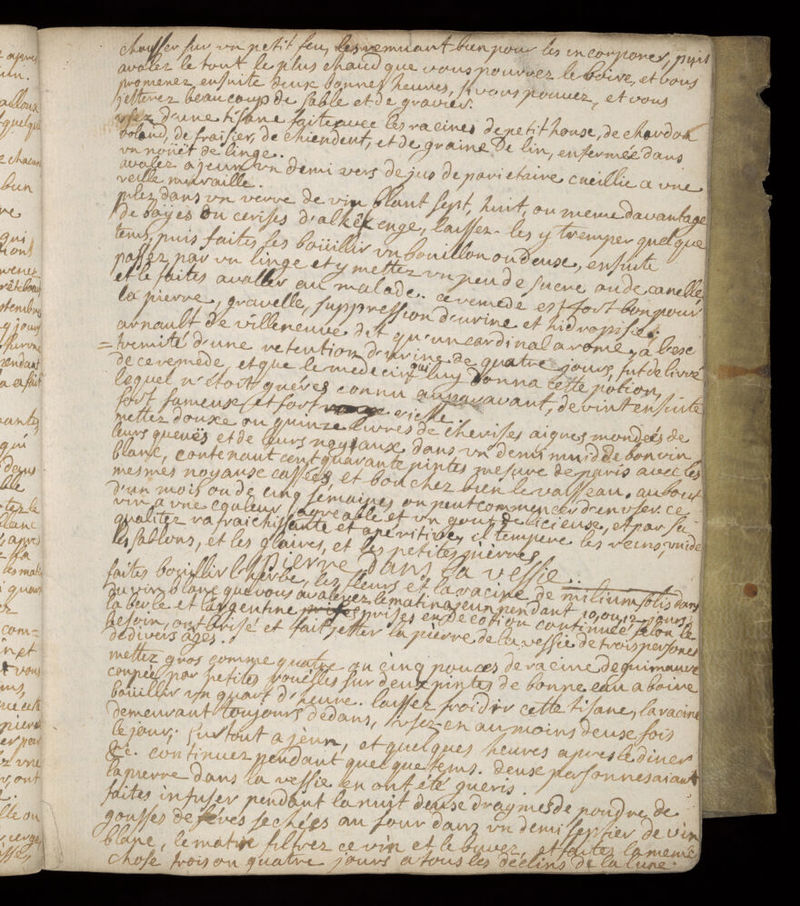 chauffer sur un petit feu, les remuant bien pour les incorporer, puis
avalez le tout le plus chaud que vous pourrez le boire, et vous
promenez ensuite deux bonnes heures, si vous pouvez, et vous
jetterez beaucoup de sable et de gravier.
usez d'une tisane faite avec les racines de petit house, de chardon
roland, de fraisier, de chiendent, et de graine de lin, enfermée dans
un noüet de linge.
avalez a jeun un demi vers de jus de parietaire cueillie a une
vieille muraille.
mettez dans un verre de vin blanc sept, huit, ou meme davantage
de bayes ou cerises d'alkekenge, laissez-les y tremper quelque
tems, puis faites les boüillir un bouillon ou deux, ensuite
passez par un linge et y mettez un peu de sucre ou de canelle,
et le faites avaller au malade. ce remede est fort bon pour
la pierre, gravelle, suppression d'urine et hidropisie;
arnault de villeneuve dit qu'un cardinal a rome, a l'ex=
=tremité d'une retention d'urine de quatre jours, fut delivré
de ce remede, et que le medecin qui luy donna cette potion,
lequel n'étoit guéres connu auparavant, devint ensuite
fort fameux, et fort riche.
mettez douze ou quinze livres de cherises aigres mondées de
leurs queuës et de leurs noyaux dans un demi muid de bon vin
blanc, contenant cent quarante pintes mesure de paris avec les
mesmes noyaux cassées, et bouchez bien le vaisseau. au bout
d'un mois ou de cinq semaines on peut commencer d'en user ce
vin a une couleur agreable et un gout delicieuse, et par sa
qualitez rafraichissante et aperitive, il tempere les reins, vuide
les sablons, et les glaires, et les petites pierres.
pierre dans la vessie.
faites boüillir l'herbe, les fleurs et la racine de milium solis dans
du vin blanc que vous avalerez le matin a jeun pendant 10, ou 12 jours.
la berle et l'argentine prises en decotion continuée selon le
besoin, ont brisé et fait jetter la pierre de la vessie de trois personnes
de divers ages.
mettez gros comme quatre ou cinq pouces de racine de guimauve
coupée par petites rouëlles sur deux pintes de bonne eau a boire
boüillir un quart d'heure. laissez froidir cette tisane, la racine
demeurant toujours dedans, usez-en au moins deux fois
le jour. sur tout a jeun, et quelques heures apres le diner
&c. continuez pendant quelque tems. deux personnes aiant
la pierre dans la vessie en ont été gueris.
faites infuser pendant la nuit deux dragmes de poudre de
gousses de feves sechées au four dans un demi septier de vin
blanc, le matin filtrez ce vin et le buvez, et faites la meme
chose trois ou quatre jours a tous les declins de la lune.